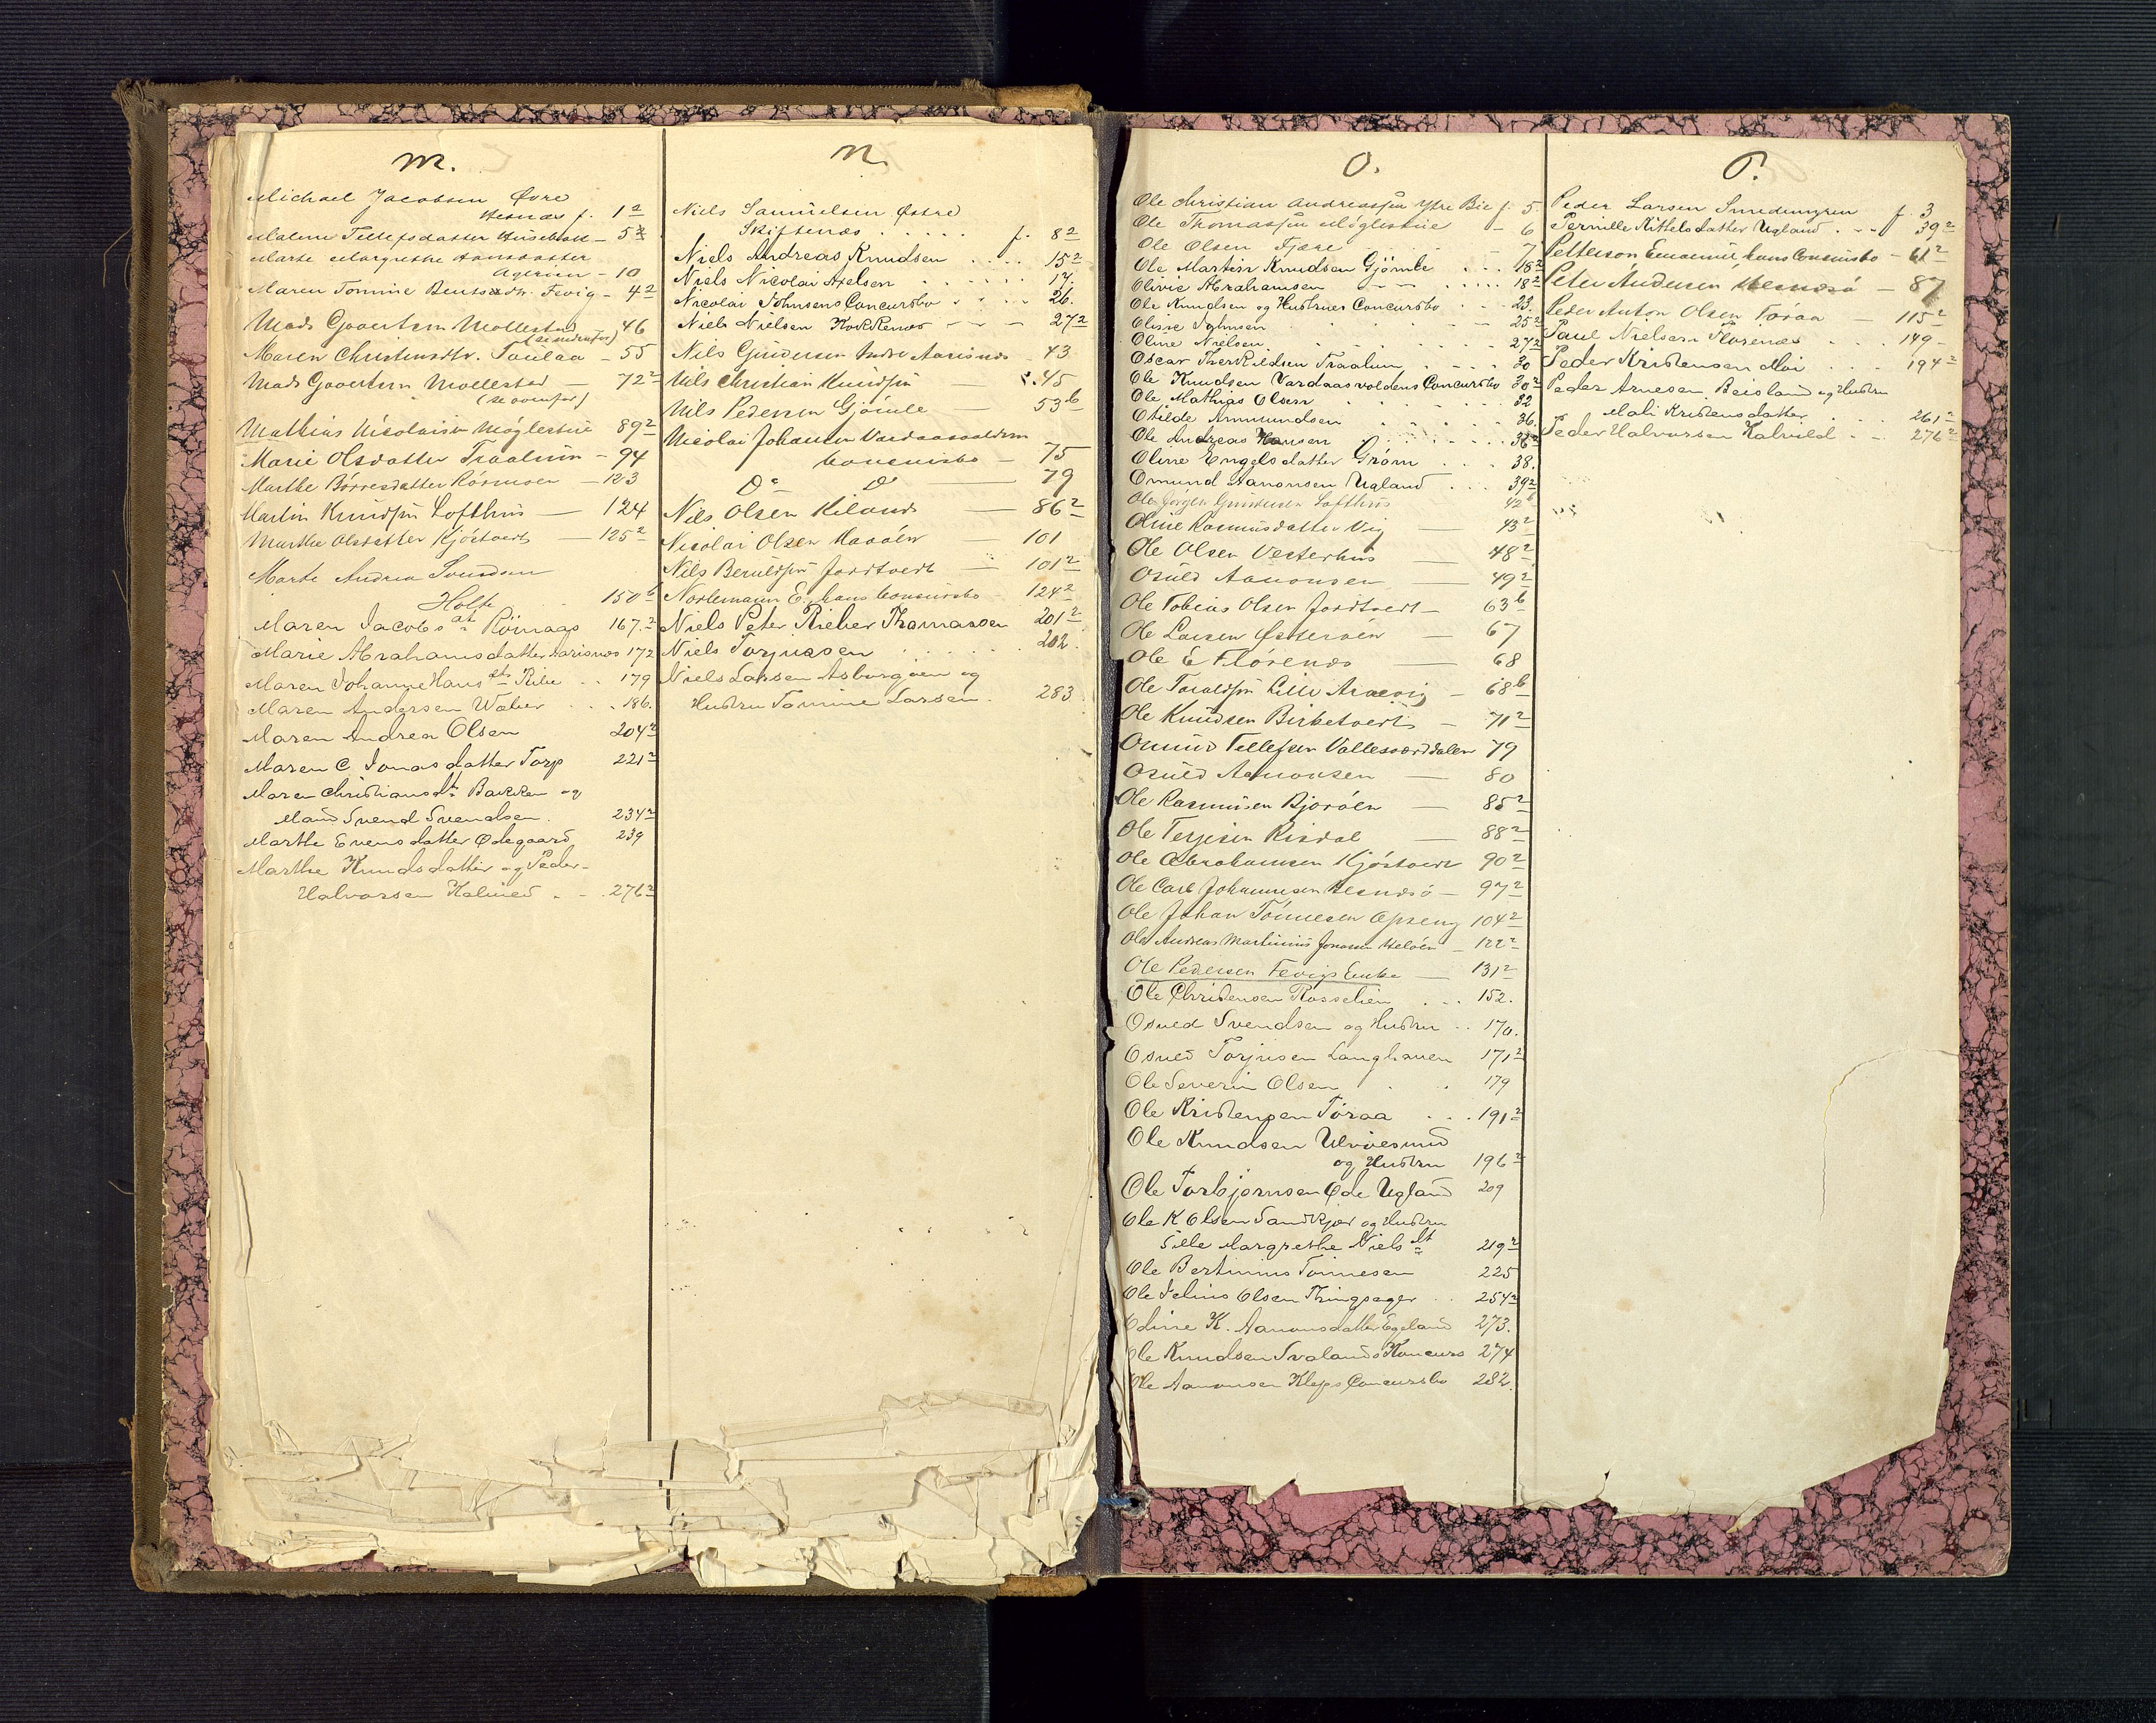 M.
Michael Jacobsen Øvre
Hesnæs f. 1 2
Malene Tellefsdatter - 5 2
Marte Margrethe Aanonsdatter
Agerøen - 10
Maren Tomine Bentsdtr. Fevig - 4 2
Mads Goovertsen Mollestad 46
(se nedenfor)
Maren Christensdtr. Taulaa - 55
Mads Goovertsen Mollestad — 72 2
(se ovenfor)
Mathias Nicolaisen Møglestue 89 2
Marie Olsdatter Traalum - 94
Marthe Børresdatter - 123
Martin Knudsen Lofthus — 124
Marthe Olsdatter Kjøstvedt — 125 2
Marte Andrea Svendsen
Holte 150 b
Maren Jacobsdtr Rønnaas 167. 2
Marie Abrahamsdatter Aarisnæs 172
Maren Johanne Hansdtr Ribe . . 179
Maren Andersen Waber . . 186.
Maren Andrea Olsen 204 2
Maren C Jonasdatter Torp 221 2
Maren Christiansdtr Bakken og
Mand Svend Svendsen. 234 2
Marthe Evensdatter Ødegaard 239
Marthe Knudsdatter og Peder
Halvorsen Kalvild . . 276 2
N.
Niels Samuelsen Østre
Skiftenæs . . . . . f. 8 2
Niels Andreas Knudsen . . . . 15 2
Niels Nicolai Axelsen . . . . . 17.
Nicolai Johnsens Concursbo . . . 26.
Niels Nielsen Kokkenæs - - - 27 2
Nils Gundersen Indre Aarisnæs - 43
Nils Christian Knudsen — 45
Nils Pedersen Gjømle — 53 b
Nicolai Johansen Vardaasvoldens
Concursbo — 75
Do Do — 79
Nils Olsen Kiland — 86 2
Nicolai Olsen Havøen — 101
Nils Beruldsen Jortvedt — 101 2
Nortemann E, hans Concursbo - 124 2
Niels Peter Rieber Thomassen 201 2
Niels Torjussen . . . . . 202.
Niels Larsen Asburgøen og
Hustru Tomine Larsen. 283
O.
Ole Christian Andreassen Ytre Bie f. 5.
Ole Thomassen Møglestue - 6
Ole Olsen Fjære . . . 7
Ole Martin Knudsen Gjømle . . . 18 2
Olivie Abrahamsen - - . . . . 18 2
Ole Knudsen og Hustrues Concursbo . 23.
Olisie Johnsen . . . . . 25 2
Oline Nielsen . . . . . 27 2
Oscar Therkildsen Traalum . . . 30
Ole Knudsen Vardaasvoldens Concursbo 30 2
Ole Mathias Olsen . . . . . 32
Otilde Ammundsen . . . . . 36.
Ole Andreas Hansen . . . . . 36 2
Oline Engelsdatter Grøm . . . 38.
Omund Aanonsen Ugland . . . 39 2
Ole Jørgen Gundersen Lofthus 42 b
Oline Rasmusdatter Vig — 43 2
Ole Olsen Vesterhus — 48 2
Osuld Aanonsen — 49 2
Ole Tobias Olsen Jortvedt - 63 b
Ole Larsen Østerøen — 67
Ole E Flórenæs — 68
Ole Taraldsen Lille Araevig - 68 b
Ole Knudsen Birketvedt - 71 2
Osmund Tellefsen Vallesværddalen 79
Osuld Aanonsen — 80
Ole Rasmussen Bjorøen — 85 2
Ole Terjesen Risdal — 88 2
Ole Abrahamsen Kjøstvedt 90 2
Ole Carl Johannesen Hesnæsø - 97 2
Ole Johan Tønnesen Opseng 104 2
Ole Andreas Martinius Jonasen Heløen - 122 2
Ole Pedersen Fevigs Enke — 131 2
Ole Christensen Rosselien . . . 152.
Osuld Svendsen og Hustru . . 170.
Osuld Torjusen Langhauen 171 2
Ole Severin Olsen . . 179
Ole Kristensen Tøraa . . . 191 2
Ole Knudsen Ulvøesund
og Hustru 196 2
Ole Torbjørnsen Øde Ugland 209
Ole K Olsen Sandkjær og Hustru
Sille Margrethe Nielsdt 219 2
Ole Bertinius Tønnesen 225
Ole Julius Olsen Thingsager . . 254 2
Odine K. Aanonsdatter Egeland 273.
Ole Knudsen Svalands Koncurs 274
Ole Aanonsen Kleps Concursbo 282.
P.
Peder Larsen Smedemyren f. 3
Pernille Kittelsdatter Ugland . - - f 39 2
Petterson Emanuel, hans Concursbo - 61 2
Peter Andersen Hesnæsø — 87
Peder Anton Olsen Tøraa — 115 2
Paul Nielsen Florenæs . . . 149 -
Peder Kristensen Moi . . . 194 2
Peder Arnesen Beisland og Hustru
Mali Kristensdatter . . . 261 2
Peder Halvorsen Kalvild . . . 276 2